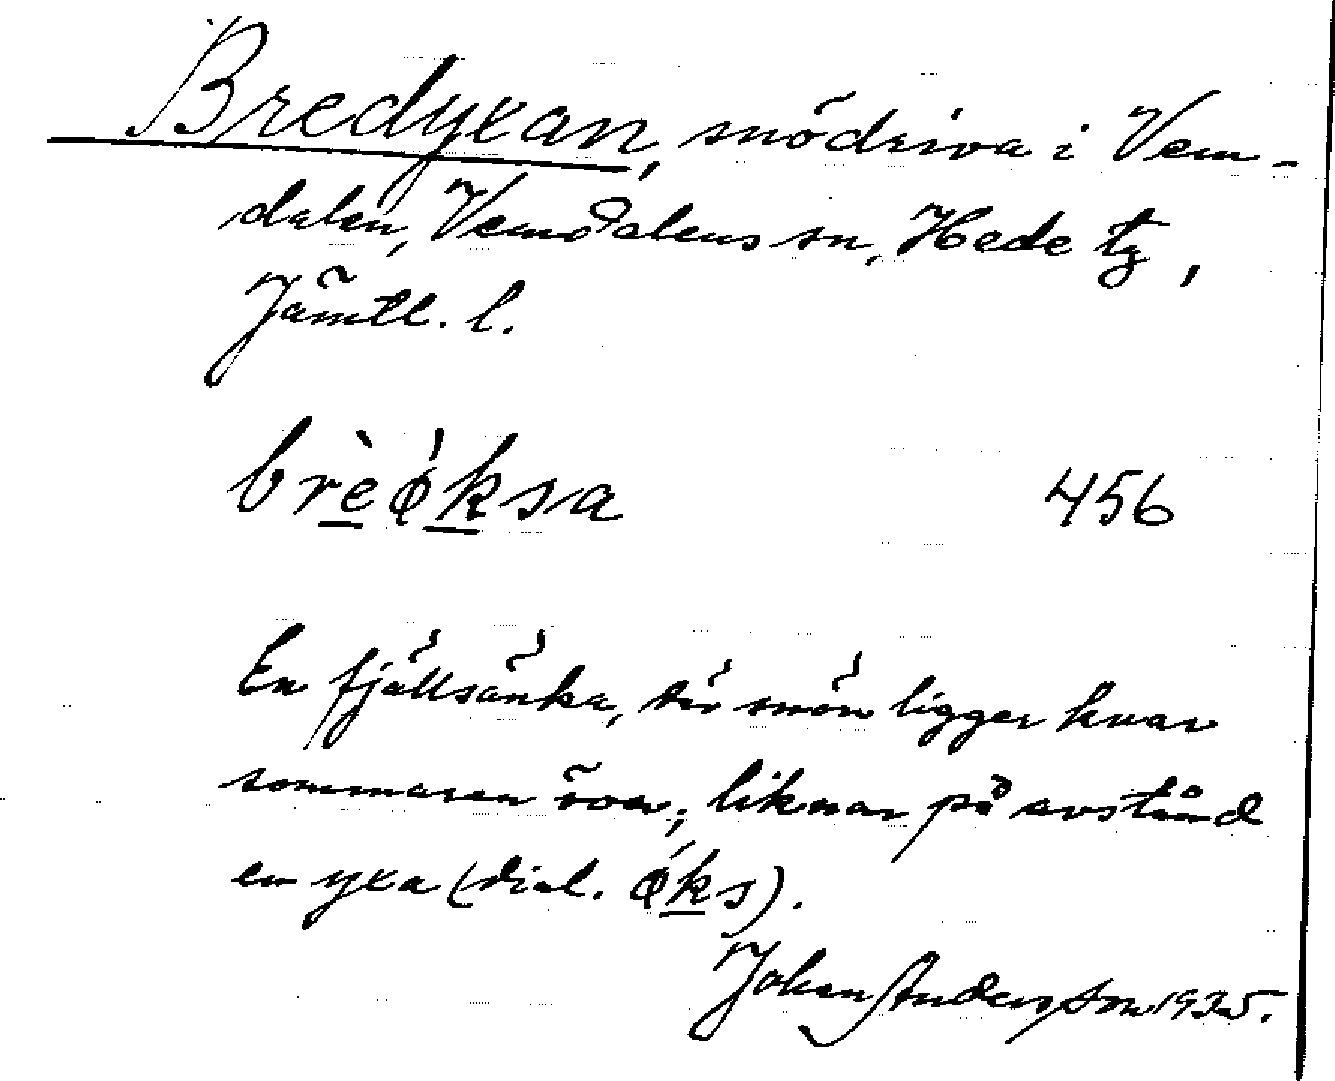 Bredyxan, snödriva i Vem-
dalen, Vemdalens sn, Hede tg,
Jämtl. l.
brèǿksa 456
En fjällsänka, där snön ligger kvar
sommaren över; liknar på avstånd
en yxa (dial. ǿks).
Johan Andersson 1935.